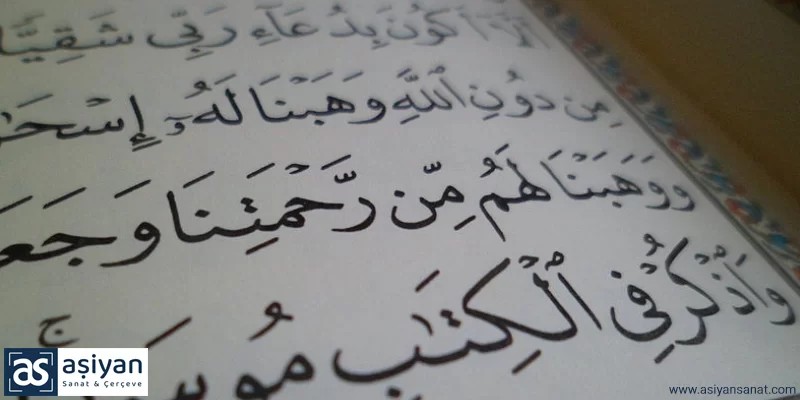 أَلَّآ أَكُونَ بِدُعَآءِ رَبِّى شَقِيًّا
مِن دُونِ ٱللَّهِ وَهَبْنَا لَهُۥٓ إِسْحَـٰ
وَوَهَبْنَا لَهُم مِّن رَّحْمَتِنَا وَجَعَ
وَٱذْكُرْ فِى ٱلْكِتَـٰبِ مُوسَىٰٓ ج
as aşiyan
Sanat & Çerçeve
www.asiyansanat.com